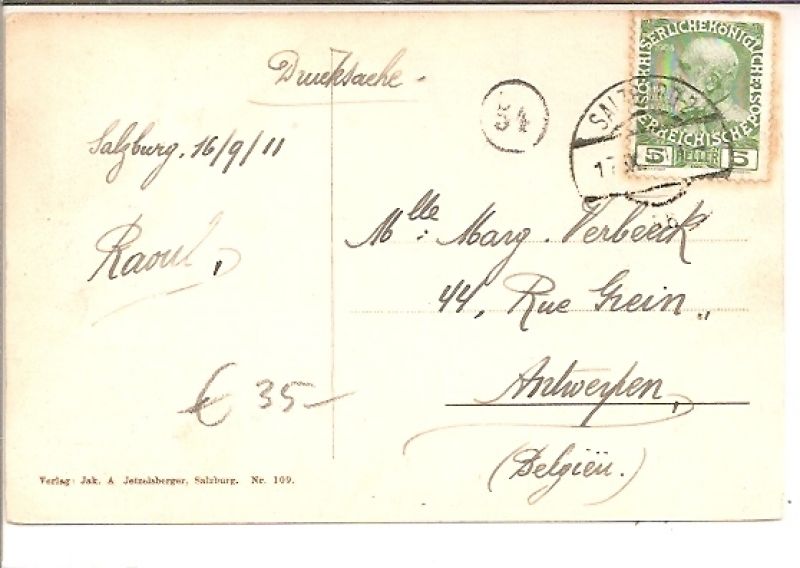 Drucksache.
Salzburg, 16/9/11
Raoul,
54
SALZBURG 2
17.IX
KAISERLICHE KÖNIGLICHE
ÖSTERREICHISCHE POST
1908
5 HELLER 5
Mlle: Marg. Verbeeck
44, Rue Grein,,
Antwerpen,
(Belgiën.)
€ 35-
Verlag: Jak. A Jetzelsberger, Salzburg. Nr. 109.